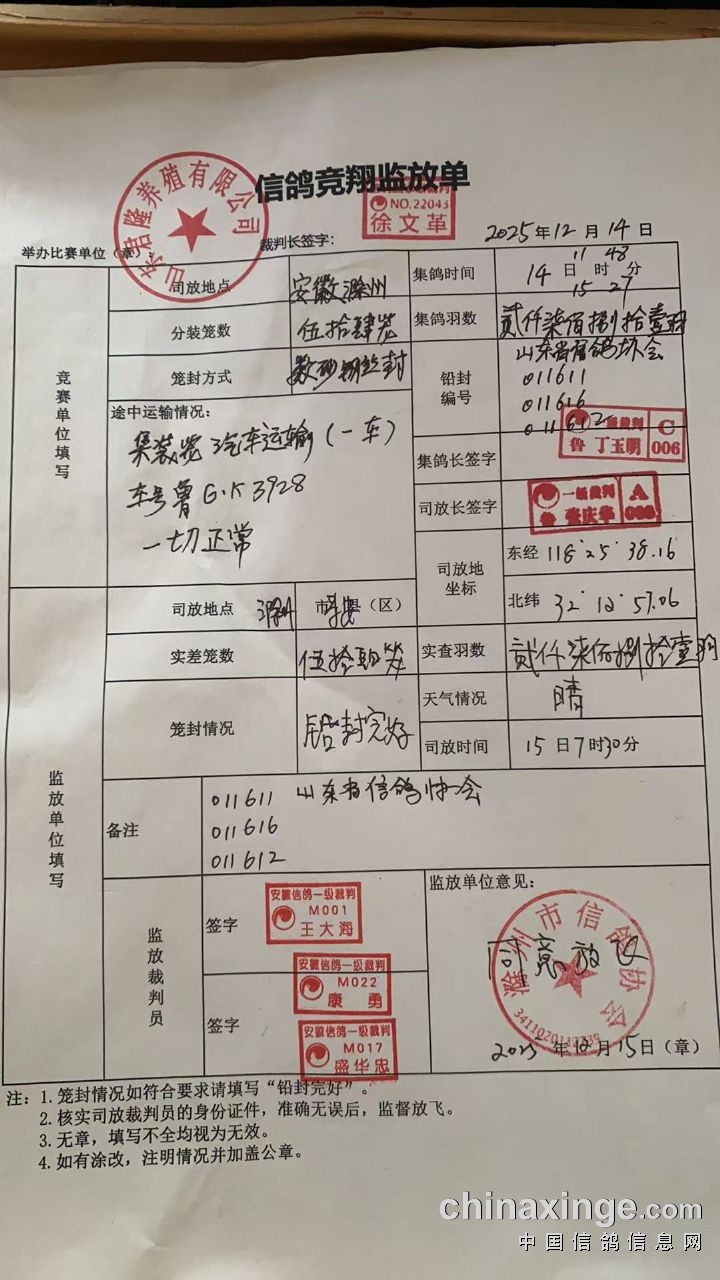 信鸽竞翔监放单
NO.22043
徐文革
裁判长签字：
2025年12月14日
举办比赛单位（章）：
竞赛单位填写
司放地点 安徽滁州
集鸽时间 14日 11时48分
15 27
分装笼数 伍拾肆笼
集鸽羽数 贰仟柒佰捌拾壹羽
笼封方式
铅封编号 山东省信鸽协会
011611
011616
011612
途中运输情况：
集装笼汽车运输（一车）
车号鲁G·K3928
一切正常
集鸽长签字
裁判 C
鲁 丁玉明 006
司放长签字
一级裁判 A
司放地坐标
东经 118°25′38.16
北纬 32°12′57.06
监放单位填写
司放地点 滁州 市 县（区）
实差笼数 伍拾肆笼
实查羽数 贰仟柒佰捌拾壹羽
笼封情况 铅封完好
天气情况 晴
司放时间 15日7时30分
备注
011611 山东省信鸽协会
011616
011612
监放裁判员
签字
安徽信鸽一级裁判
M001
王大海
安徽信鸽一级裁判
M022
康勇
签字
安徽信鸽一级裁判
M017
盛华忠
监放单位意见：
同意放飞
滁州市信鸽协会
2025年12月15日（章）
注：1. 笼封情况如符合要求请填写“铅封完好”。
2. 核实司放裁判员的身份证件，准确无误后，监督放飞。
3. 无章，填写不全均视为无效。
4. 如有涂改，注明情况并加盖公章。
chinaxinge.com
中国信鸽信息网